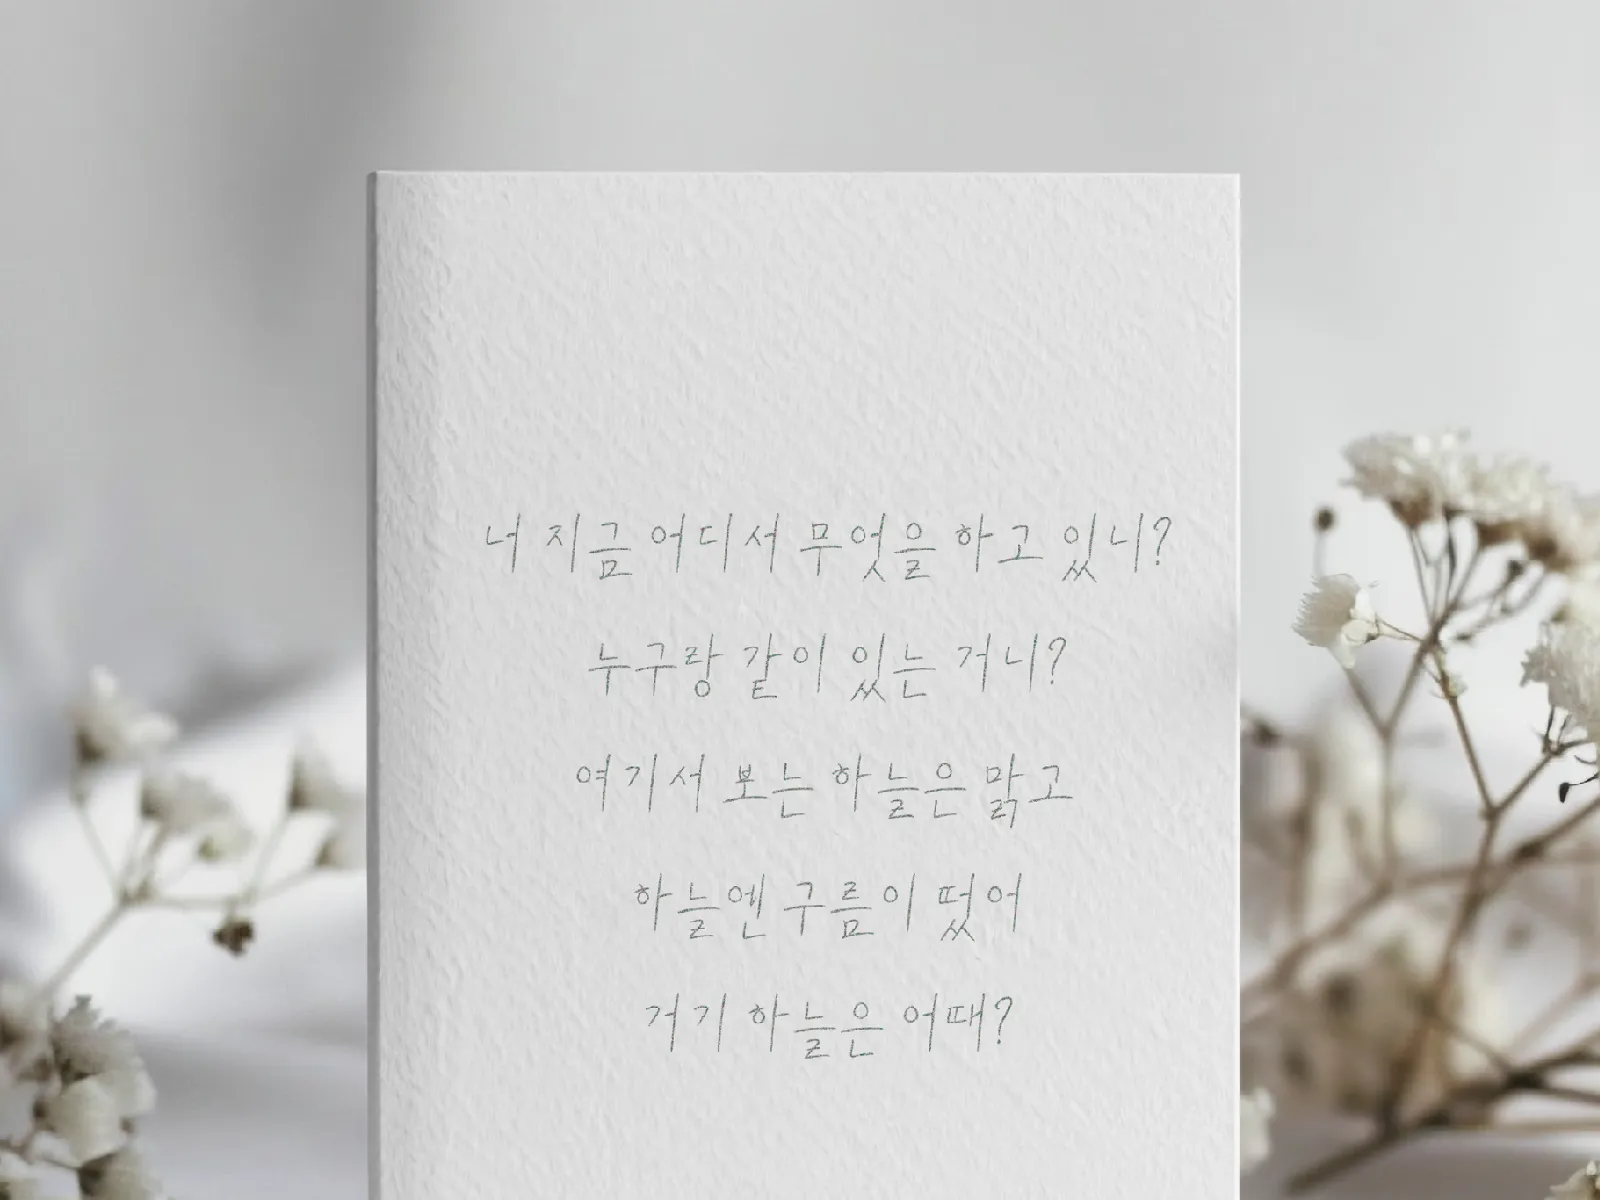 너 지금 어디서 무엇을 하고 있니?
누구랑 같이 있는 거니?
여기서 보는 하늘은 맑고
하늘엔 구름이 떴어
거기 하늘은 어때?